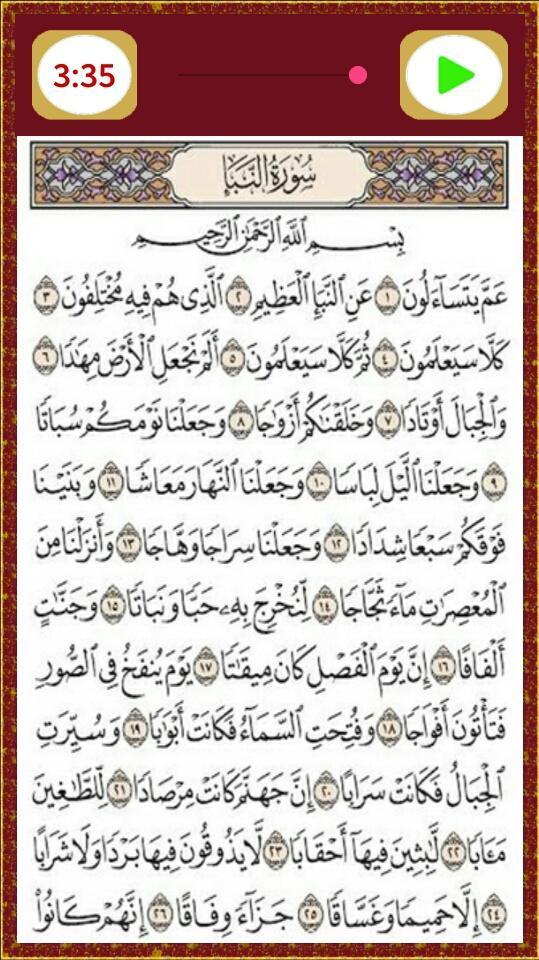 3:35
سُورَةُ النَّبَإِ
بِسْمِ اللَّهِ الرَّحْمَٰنِ الرَّحِيمِ
عَمَّ يَتَسَآءَلُونَ ١ عَنِ ٱلنَّبَإِ ٱلْعَظِيمِ ٢ ٱلَّذِى هُمْ فِيهِ مُخْتَلِفُونَ ٣
كَلَّا سَيَعْلَمُونَ ٤ ثُمَّ كَلَّا سَيَعْلَمُونَ ٥ أَلَمْ نَجْعَلِ ٱلْأَرْضَ مِهَٰدًا ٦
وَٱلْجِبَالَ أَوْتَادًا ٧ وَخَلَقْنَٰكُمْ أَزْوَٰجًا ٨ وَجَعَلْنَا نَوْمَكُمْ سُبَاتًا
٩ وَجَعَلْنَا ٱلَّيْلَ لِبَاسًا ١٠ وَجَعَلْنَا ٱلنَّهَارَ مَعَاشًا ١١ وَبَنَيْنَا
فَوْقَكُمْ سَبْعًا شِدَادًا ١٢ وَجَعَلْنَا سِرَاجًا وَهَّاجًا ١٣ وَأَنزَلْنَا مِنَ
ٱلْمُعْصِرَٰتِ مَآءً ثَجَّاجًا ١٤ لِّنُخْرِجَ بِهِۦ حَبًّا وَنَبَاتًا ١٥ وَجَنَّٰتٍ
أَلْفَافًا ١٦ إِنَّ يَوْمَ ٱلْفَصْلِ كَانَ مِيقَٰتًا ١٧ يَوْمَ يُنفَخُ فِى ٱلصُّورِ
فَتَأْتُونَ أَفْوَاجًا ١٨ وَفُتِحَتِ ٱلسَّمَآءُ فَكَانَتْ أَبْوَٰبًا ١٩ وَسُيِّرَتِ
ٱلْجِبَالُ فَكَانَتْ سَرَابًا ٢٠ إِنَّ جَهَنَّمَ كَانَتْ مِرْصَادًا ٢١ لِّلطَّٰغِينَ
مَـَٔابًا ٢٢ لَّٰبِثِينَ فِيهَآ أَحْقَابًا ٢٣ لَّا يَذُوقُونَ فِيهَا بَرْدًا وَلَا شَرَابًا
٢٤ إِلَّا حَمِيمًا وَغَسَّاقًا ٢٥ جَزَآءً وِفَاقًا ٢٦ إِنَّهُمْ كَانُوا۟